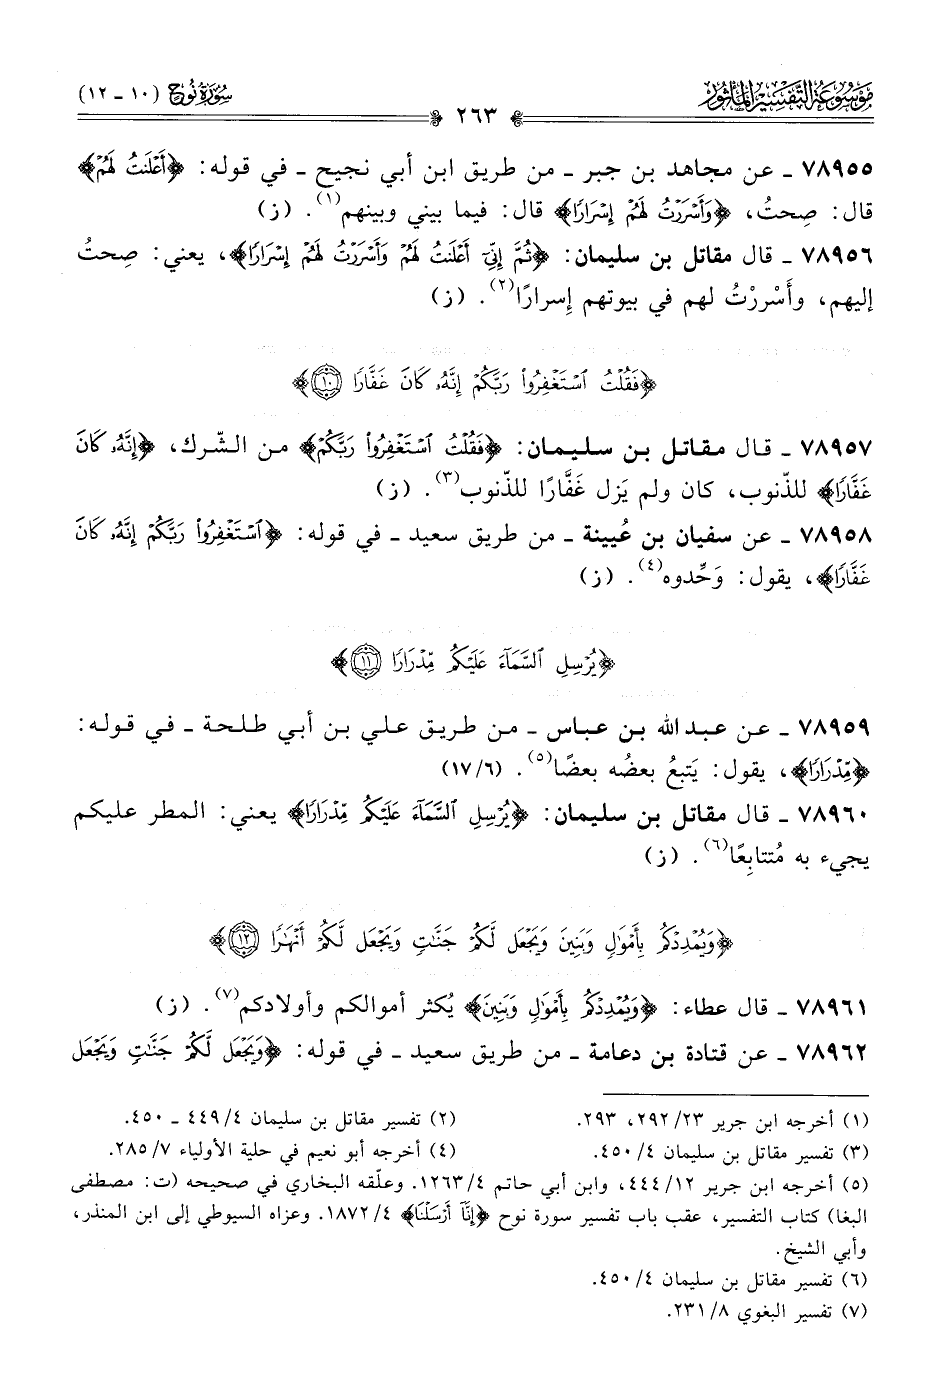 موسوعة التفسير المأثور
سورة نوح (١٠ - ١٢)
٢٦٣
٧٨٩٥٥ - عن مجاهد بن جبر - من طريق ابن أبي نجيح - في قوله: ﴿أَعْلَنتُ لَهُمْ﴾
قال: صِحتُ، ﴿وَأَسْرَرْتُ لَهُمْ إِسْرَارًا﴾ قال: فيما بيني وبينهم(١). (ز)
٧٨٩٥٦ - قال مقاتل بن سليمان: ﴿ثُمَّ إِنِّي أَعْلَنتُ لَهُمْ وَأَسْرَرْتُ لَهُمْ إِسْرَارًا﴾، يعني: صِحتُ
إليهم، وأَسْررْتُ لهم في بيوتهم إِسرارًا(٢). (ز)
﴿فَقُلْتُ ٱسْتَغْفِرُوا۟ رَبَّكُمْ إِنَّهُۥ كَانَ غَفَّارًا ۝١٠﴾
٧٨٩٥٧ - قال مقاتل بن سليمان: ﴿فَقُلْتُ ٱسْتَغْفِرُوا۟ رَبَّكُمْ﴾ من الشّرك، ﴿إِنَّهُۥ كَانَ
غَفَّارًا﴾ للذّنوب، كان ولم يَزل غَفَّارًا للذّنوب(٣). (ز)
٧٨٩٥٨ - عن سفيان بن عُيينة - من طريق سعيد - في قوله: ﴿ٱسْتَغْفِرُوا۟ رَبَّكُمْ إِنَّهُۥ كَانَ
غَفَّارًا﴾، يقول: وَحِّدوه(٤). (ز)
﴿يُرْسِلِ ٱلسَّمَآءَ عَلَيْكُم مِّدْرَارًا ۝١١﴾
٧٨٩٥٩ - عن عبد الله بن عباس - من طريق علي بن أبي طلحة - في قوله:
﴿مِّدْرَارًا﴾، يقول: يَتبعُ بعضُه بعضًا(٥). (١٧/٦)
٧٨٩٦٠ - قال مقاتل بن سليمان: ﴿يُرْسِلِ ٱلسَّمَآءَ عَلَيْكُم مِّدْرَارًا﴾ يعني: المطر عليكم
يجيء به مُتتابِعًا(٦). (ز)
﴿وَيُمْدِدْكُم بِأَمْوَٰلٍ وَبَنِينَ وَيَجْعَل لَّكُمْ جَنَّـٰتٍ وَيَجْعَل لَّكُمْ أَنْهَـٰرًا ۝١٢﴾
٧٨٩٦١ - قال عطاء: ﴿وَيُمْدِدْكُم بِأَمْوَٰلٍ وَبَنِينَ﴾ يُكثر أموالكم وأولادكم(٧). (ز)
٧٨٩٦٢ - عن قتادة بن دعامة - من طريق سعيد - في قوله: ﴿وَيَجْعَل لَّكُمْ جَنَّـٰتٍ وَيَجْعَل
(١) أخرجه ابن جرير ٢٣/ ٢٩٢، ٢٩٣.
(٢) تفسير مقاتل بن سليمان ٤/ ٤٤٩ - ٤٥٠.
(٣) تفسير مقاتل بن سليمان ٤/ ٤٥٠.
(٤) أخرجه أبو نعيم في حلية الأولياء ٧/ ٢٨٥.
(٥) أخرجه ابن جرير ١٢/ ٤٤٤، وابن أبي حاتم ٤/ ١٢٦٣. وعلّقه البخاري في صحيحه (ت: مصطفى
البغا) كتاب التفسير، عقب باب تفسير سورة نوح ﴿إِنَّآ أَرْسَلْنَا﴾ ٤/ ١٨٧٢. وعزاه السيوطي إلى ابن المنذر،
وأبي الشيخ.
(٦) تفسير مقاتل بن سليمان ٤/ ٤٥٠.
(٧) تفسير البغوي ٨/ ٢٣١.